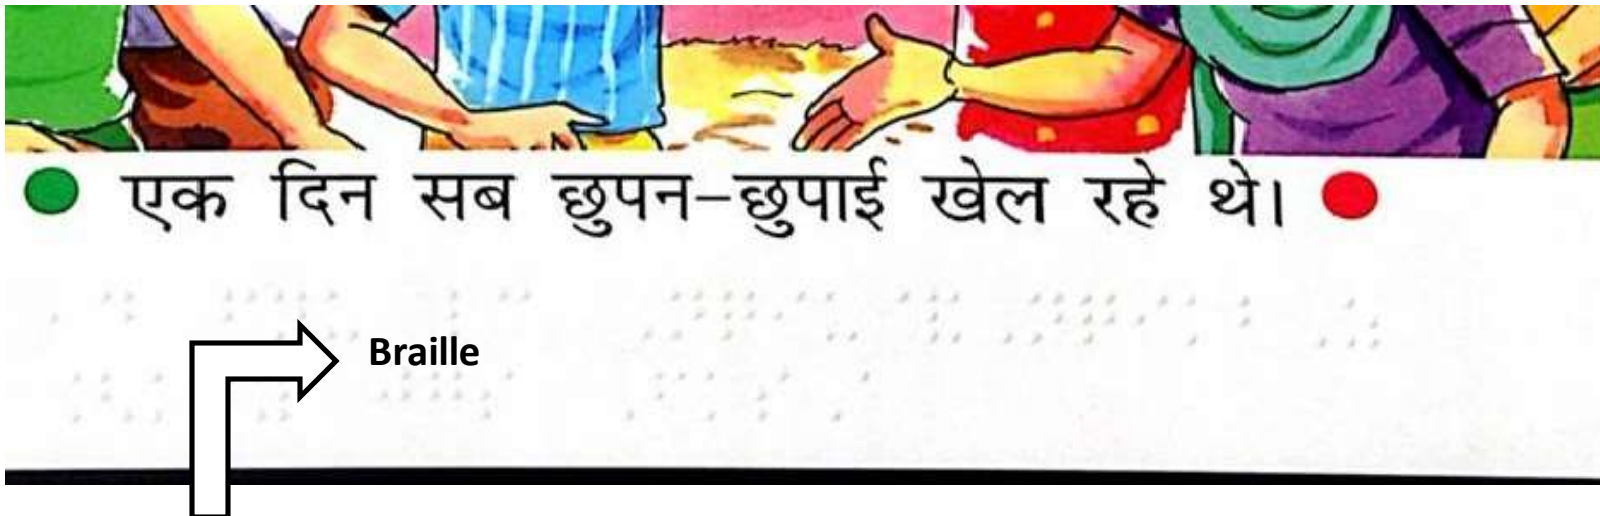 एक दिन सब छुपन-छुपाई खेल रहे थे।
Braille